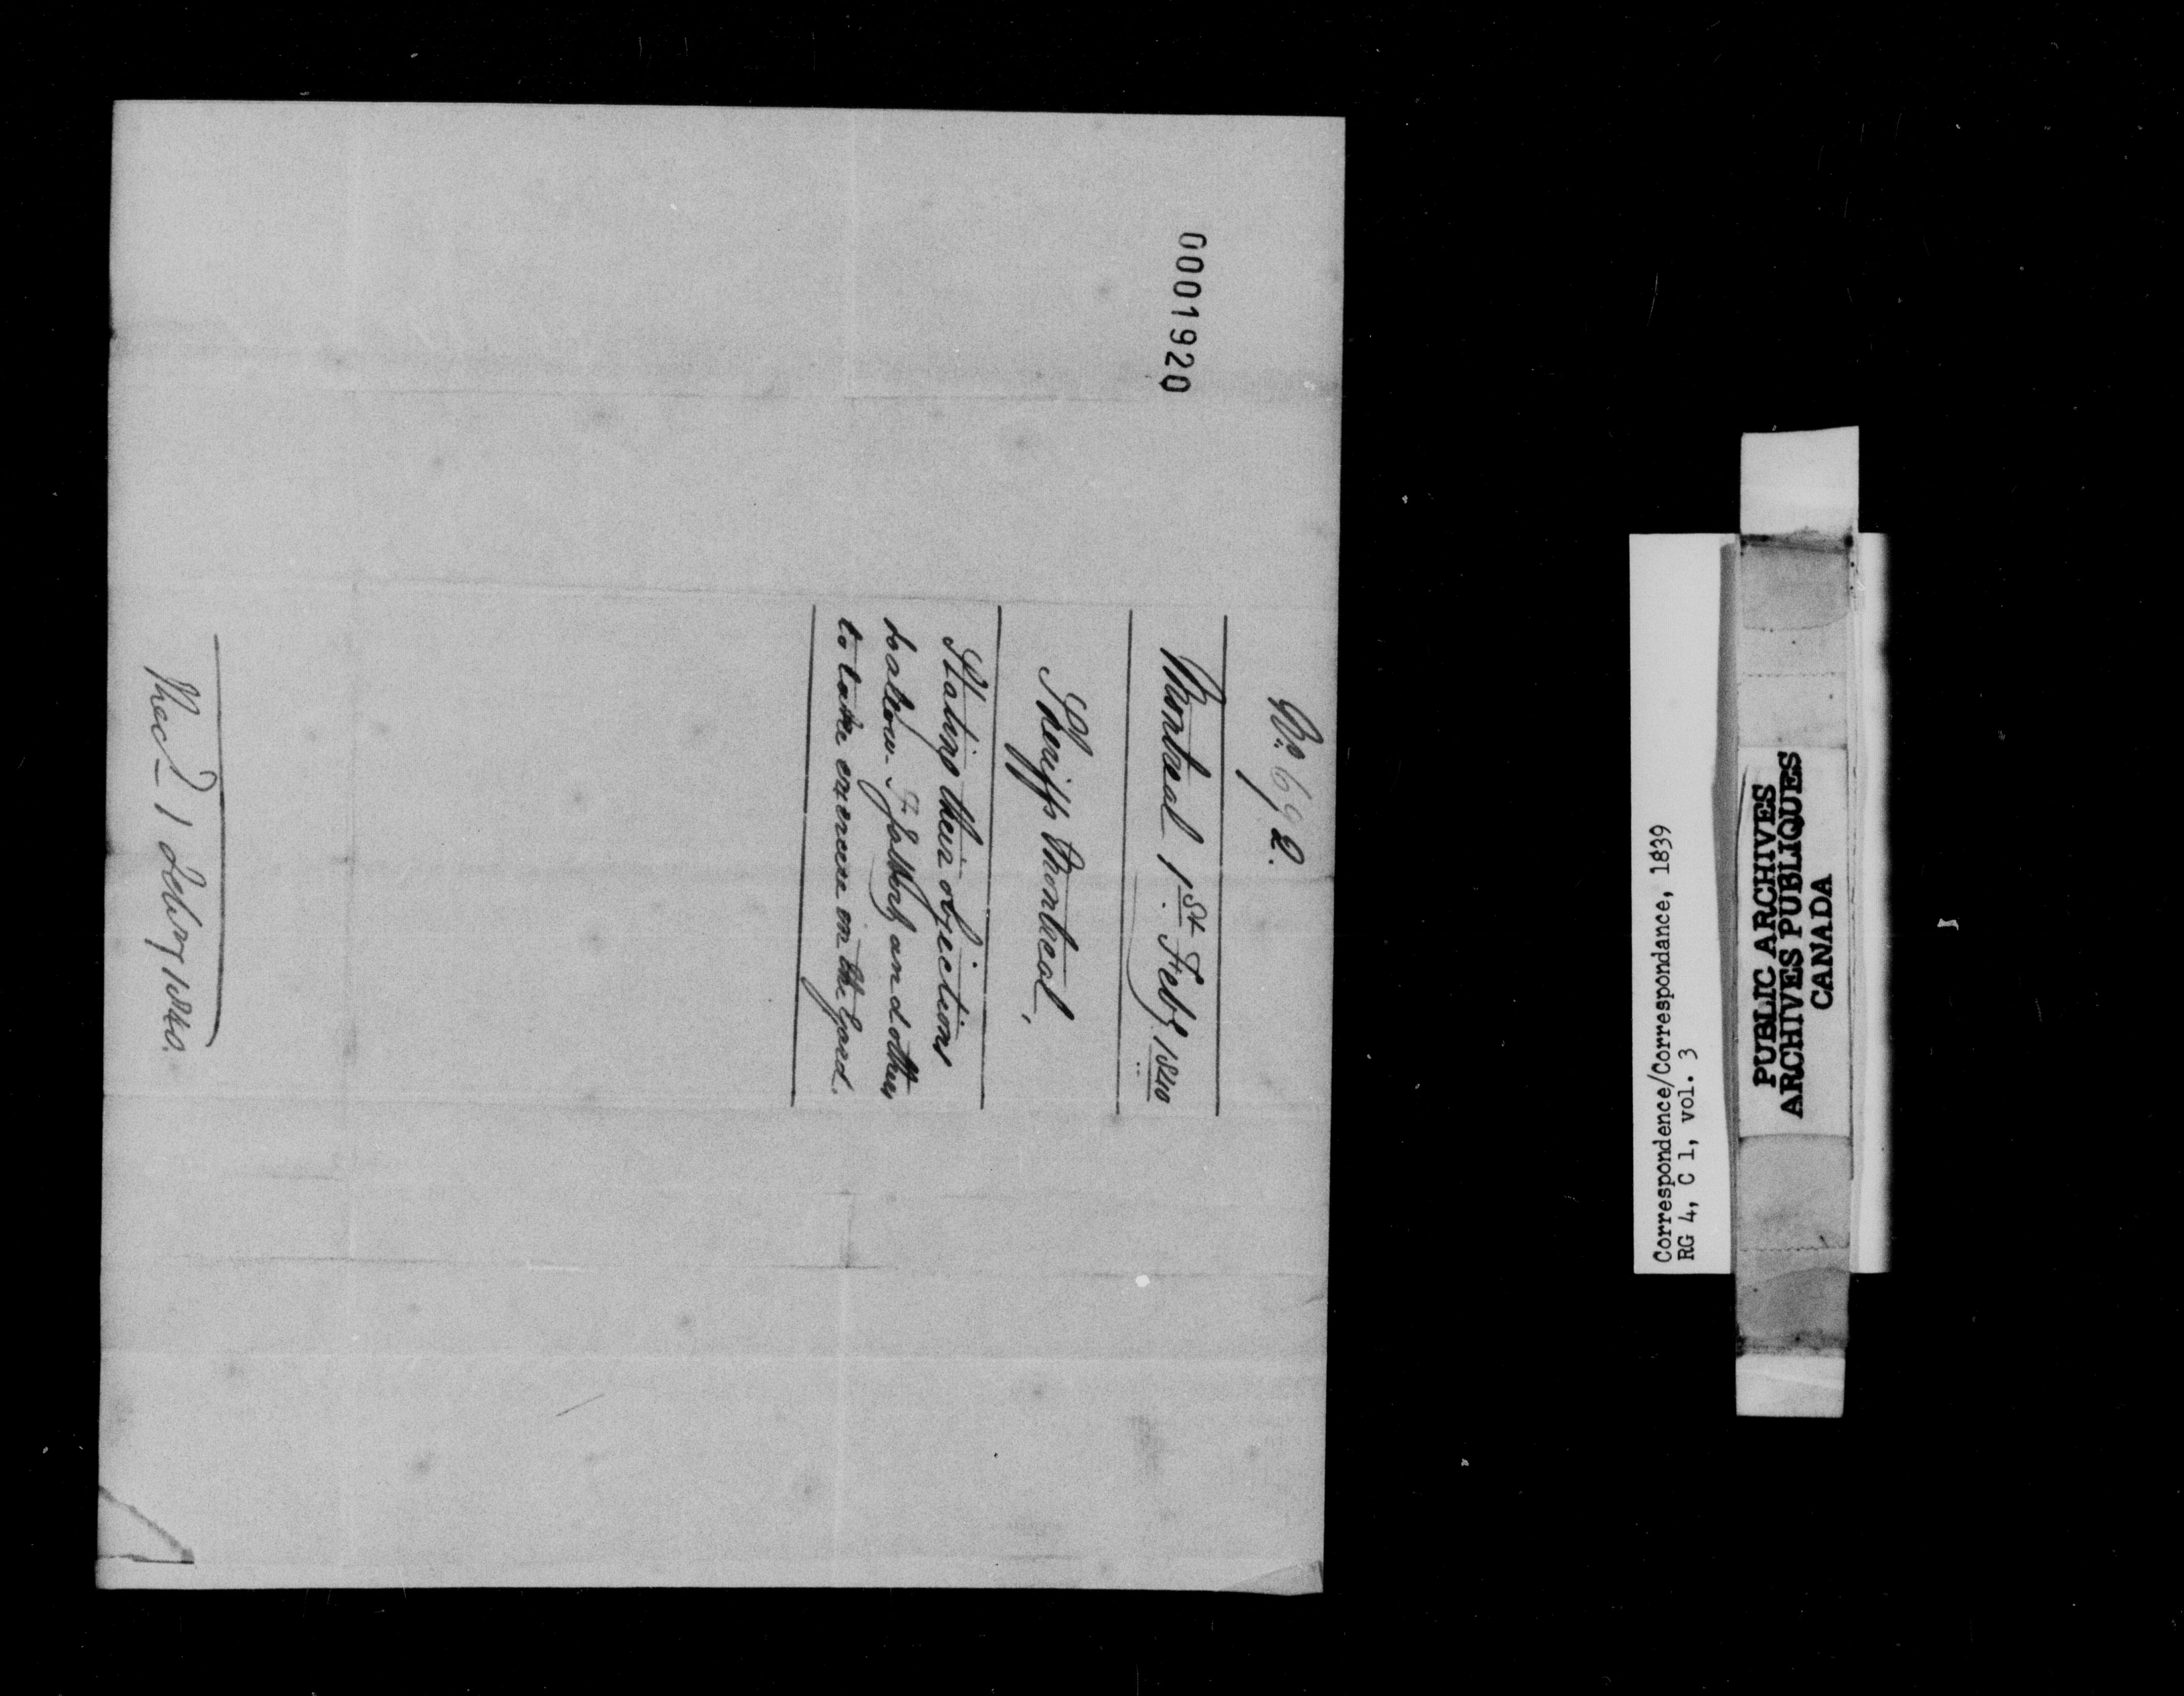 0001920
No. 692.
Montreal 1st. Feby. 1840
Sheriffs Montreal,
Stating their objections
to and others
to take exercise in the Yard.
Recd 1 Feby 1840.
Correspondence/Correspondance, 1839
RG 4, C 1, vol. 3
PUBLIC ARCHIVES
ARCHIVES PUBLIQUES
CANADA